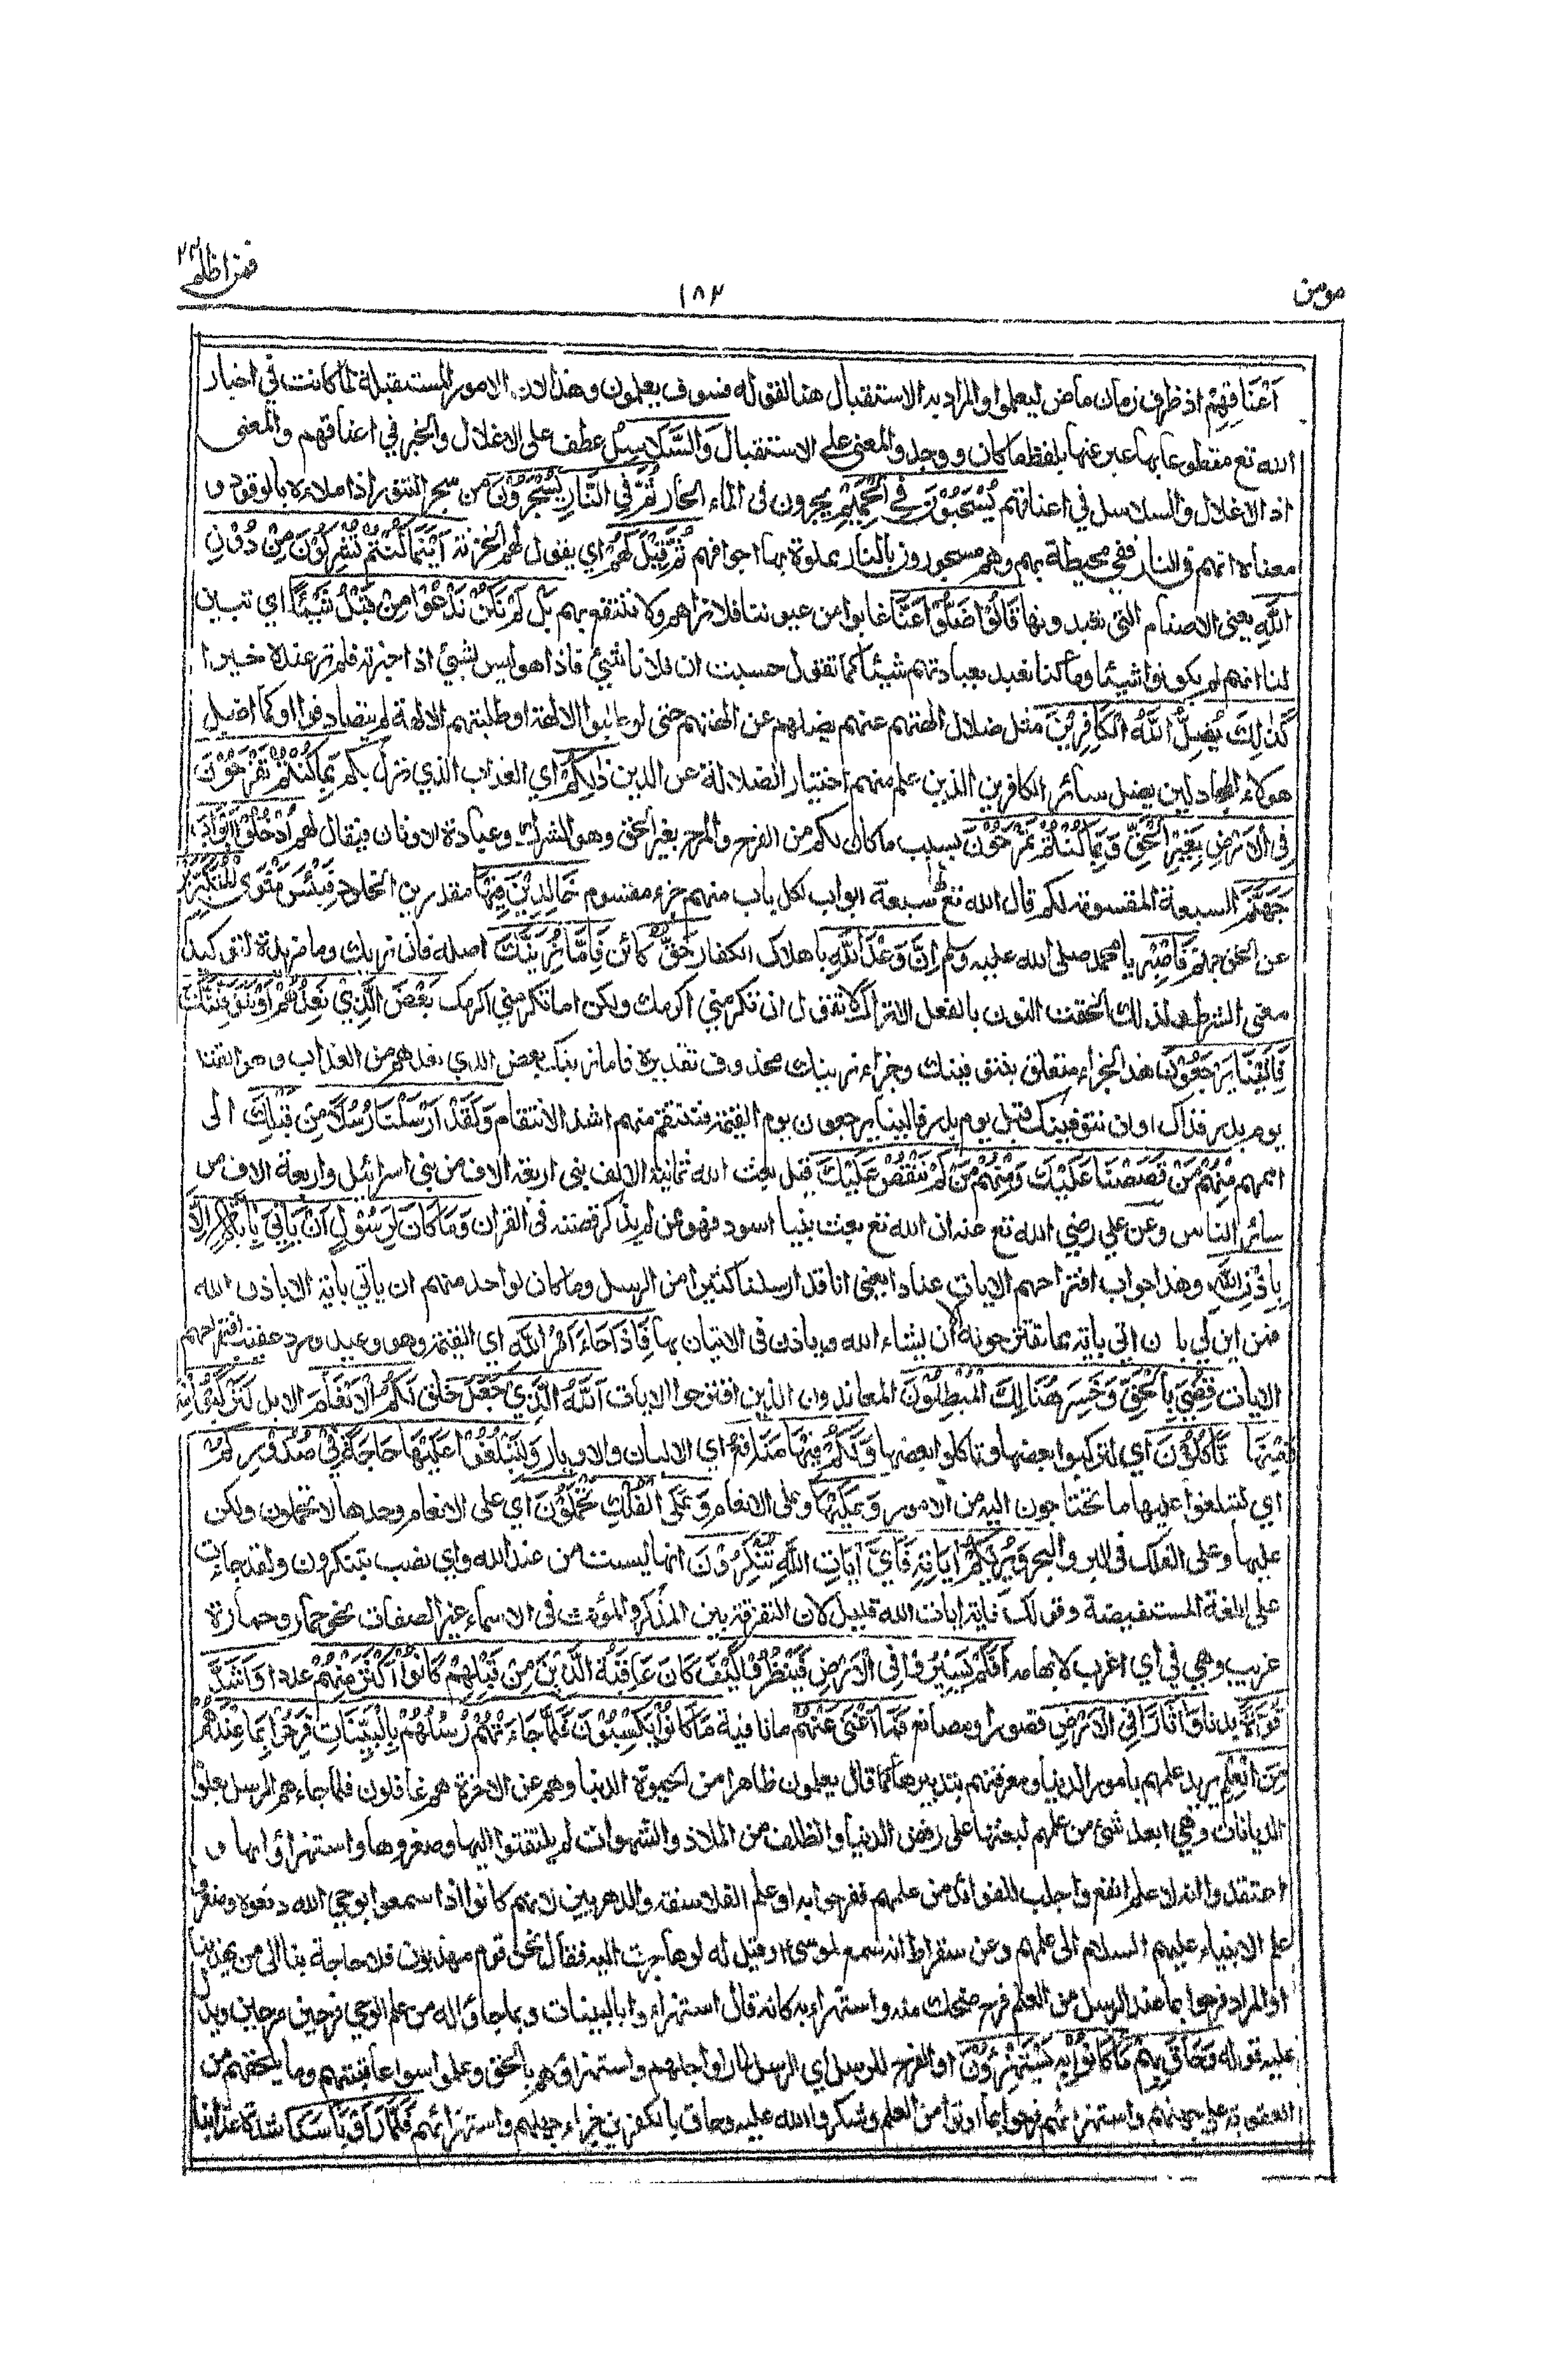 مومن
١٨٢
فمن اظلم ٢٤
أَعْنَاقِهِمْ اذ ظرف زمان ماض ليعملوا والمراد به الاستقبال هنا لقوله فسوف يعلمون وهذا لان الامور المستقبلة لما كانت في اخبار
الله تع مقطوعا بها عبر عنها بلفظ ما كان ووجد والمعنى على الاستقبال وَالسَّلَاسِلُ عطف على الاغلال والخبر في اعناقهم والمعنى
اذ الاغلال والسلاسل في اعناقهم يُسْحَبُوْنَ فِي الْحَمِيْمِ يجرون فى الماء الحار ثُمَّ فِي النَّارِ يُسْجَرُوْنَ من سجر التنور اذا ملاءه بالوقود و
معناه انهم فى النار فهي محيطة بهم وهم مسجورون بالنار مملوة بها اجوافهم ثُمَّ قِيْلَ لَهُمْ اي يقول لهم الخزنة اَيْنَمَا كُنْتُمْ تُشْرِكُوْنَ مِنْ دُوْنِ
اللّٰهِ يعنى الاصنام التي تعبدونها قَالُوْا ضَلُّوْا عَنَّا غابوا عن عيوننا فلا نراهم ولا ننتفع بهم بَلْ لَمْ نَكُنْ نَدْعُوْا مِنْ قَبْلُ شَيْئًا اي تبين
لنا انهم لم يكونوا شيئا وما كنا نعبد بعبادتهم شيئا كما تقول حسبت ان فلانا شيئ فاذا هو ليس بشيئ اذا خبرته فلم تر عنده خيرا
كَذٰلِكَ يُضِلُّ اللّٰهُ الْكَافِرِيْنَ مثل ضلال الهتهم عنهم يضلهم عن الهتهم حتى لو طلبوا الالهة او طلبتهم الالهة لم يتصادفوا او كما اضل
هولاء المجادلين يضل سائر الكافرين الذين علم منهم اختيار الضلالة عن الدين ذٰلِكُمْ اي العذاب الذي نزل بكم بِمَا كُنْتُمْ تَفْرَحُوْنَ
فِى الْاَرْضِ بِغَيْرِ الْحَقِّ وَبِمَا كُنْتُمْ تَمْرَحُوْنَ بسبب ما كان لكم من الفرح والمرح بغير الحق وهو الشرك وعبادة الاوثان فيقال لهم اُدْخُلُوْا اَبْوَابَ
جَهَنَّمَ السبعة المقسومة لكم قال الله تع لها سبعة ابواب لكل باب منهم جزء مقسوم خَالِدِيْنَ فِيْهَا مقدرين الخلود فَبِئْسَ مَثْوَى الْمُتَكَبِّرِيْنَ
عن الحق جهنم فَاصْبِرْ يا محمد صلى الله عليه وسلم اِنَّ وَعْدَ اللّٰهِ باهلاك الكفار حَقٌّ كائن فَاِمَّا نُرِيَنَّكَ اصله فان نريك وما مزيدة لتوكيد
معنى الشرط ولذلك الحقت النون بالفعل الا تراك لا تقول ان تكرمني اكرمك ولكن اما تكرمني اكرمك بَعْضَ الَّذِيْ نَعِدُهُمْ اَوْ نَتَوَفَّيَنَّكَ
فَاِلَيْنَا يُرْجَعُوْنَ هذا الجزاء متعلق بنتوفينك وجزاء نرينك محذوف تقديره فاما نرينك بعض الذي نعدهم من العذاب وهو القتل
يوم بدر فذاك او ان نتوفينك قبل يوم بدر فالينا يرجعون يوم القيمة فننتقم منهم اشد الانتقام وَلَقَدْ اَرْسَلْنَا رُسُلًا مِنْ قَبْلِكَ الى
اممهم مِنْهُمْ مَنْ قَصَصْنَا عَلَيْكَ وَمِنْهُمْ مَنْ لَمْ نَقْصُصْ عَلَيْكَ قيل بعث الله ثمانية الاف نبى اربعة الاف من بني اسرائيل واربعة الاف من
سائر الناس وعن علي رضي الله تع عنه ان الله تع بعث نبيا اسود فهو ممن لم يذكر قصته فى القران وَمَا كَانَ لِرَسُوْلٍ اَنْ يَاْتِيَ بِاٰيَةٍ اِلَّا
بِاِذْنِ اللّٰهِ وهذا جواب اقتراحهم الايات عنادا يعنى انا قد ارسلنا كثيرا من الرسل وما كان لواحد منهم ان ياتي باية الا باذن الله
فمن اين لي بان اتي باية مما تقترحونه الا ان يشاء الله وياذن فى الاتيان بها فَاِذَا جَاءَ اَمْرُ اللّٰهِ اي القيمة وهو وعيد ورد عقيب اقتراحهم
الايات قُضِيَ بِالْحَقِّ وَخَسِرَ هُنَالِكَ الْمُبْطِلُوْنَ المعاندون الذين اقترحوا الايات اَللّٰهُ الَّذِيْ جَعَلَ خلق لَكُمُ الْاَنْعَامَ الابل لِتَرْكَبُوْا مِنْهَا
وَمِنْهَا تَاْكُلُوْنَ اي لتركبوا بعضها وتاكلوا بعضها وَلَكُمْ فِيْهَا مَنَافِعُ اي الالبان والاوبار وَلِتَبْلُغُوْا عَلَيْهَا حَاجَةً فِيْ صُدُوْرِكُمْ
اي لتبلغوا عليها ما تحتاجون اليه من الامور وَعَلَيْهَا وعلى الانعام وَعَلَى الْفُلْكِ تُحْمَلُوْنَ اي على الانعام وحدها لا تحملون ولكن
عليها وعلى الفلك فى البر والبحر وَيُرِيْكُمْ اٰيَاتِهٖ فَاَيَّ اٰيَاتِ اللّٰهِ تُنْكِرُوْنَ انها ليست من عند الله واي نصب بتنكرون ولقد جاءت
على اللغة المستفيضة وقولك فاية ايات الله قليل لان التفرقة بين المذكر والمؤنث فى الاسماء غير الصفات نحو حمار وحمارة
غريب وهي في اي اغرب لابهامه اَفَلَمْ يَسِيْرُوْا فِى الْاَرْضِ فَيَنْظُرُوْا كَيْفَ كَانَ عَاقِبَةُ الَّذِيْنَ مِنْ قَبْلِهِمْ كَانُوْا اَكْثَرَ مِنْهُمْ عددا وَاَشَدَّ
قُوَّةً بدنا وَاٰثَارًا فِى الْاَرْضِ قصورا ومصانع فَمَا اَغْنٰى عَنْهُمْ ما نافية مَا كَانُوْا يَكْسِبُوْنَ فَلَمَّا جَاءَتْهُمْ رُسُلُهُمْ بِالْبَيِّنَاتِ فَرِحُوْا بِمَا عِنْدَهُمْ
مِنَ الْعِلْمِ يريد علمهم بامور الدنيا ومعرفتهم بتدبيرها كما قال يعلمون ظاهرا من الحيوة الدنيا وهم عن الاخرة هم غافلون فلما جاءهم الرسل بعلوم
الديانات وهي ابعد شئ من علمهم لبعثها على رفض الدنيا والظلف من الملاذ والشهوات لم يلتفتوا اليها وصغروها واستهزاؤا بها و
اعتقدوا انه لا علم انفع واجلب للفوائد من علمهم ففرحوا به او علم الفلاسفة والدهريين لانهم كانوا اذا سمعوا بوحي الله دفعوه وصغروا
علم الانبياء عليهم السلام الى علمهم وعن سقراط انه سمع بموسى ع وقيل له لو هاجرت اليه فقال نحن قوم مهذبون فلا حاجة بنا الى من يهذبنا
او المراد فرحوا بما عند الرسل من العلم فرح ضحك منه واستهزاء به كانه قال استهزاءوا بالبينات وبما جاؤا به من علم الوحي فرحين مرحين ويدل
عليه قوله وَحَاقَ بِهِمْ مَا كَانُوْا بِهٖ يَسْتَهْزِءُوْنَ او الفرح للرسل اي الرسل لما راوا جهلهم واستهزاؤهم بالحق وعلموا سوء عاقبتهم وما يلحقهم من
العقوبة على جهلهم واستهزائهم فرحوا بما اوتوا من العلم وشكروا الله عليه وحاق بالكفرين جزاء جهلهم واستهزائهم فَلَمَّا رَاَوْا بَاْسَنَا شدة عذابنا